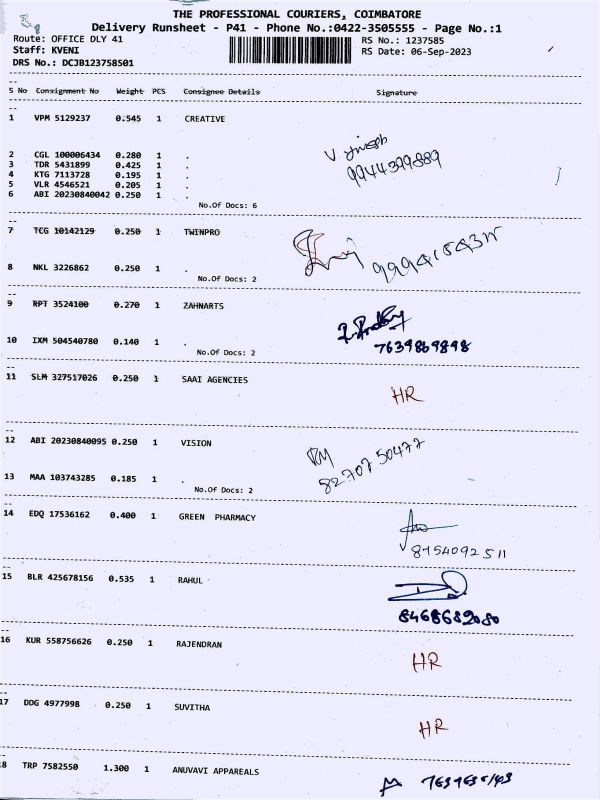 THE PROFESSIONAL COURIERS, COIMBATORE
Delivery Runsheet - P41 - Phone No.:0422-3505555 - Page No.:1
Route: OFFICE DLY 41 RS No.: 1237585
Staff: KVENI RS Date: 06-Sep-2023
DRS No.: DCJB123758501
S No Consignment No Weight PCS Consignee Details Signature
1 VPM 5129237 0.545 1 CREATIVE
2 CGL 100006434 0.280 1 .
3 TDR 5431899 0.425 1 .
4 KTG 7113728 0.195 1 .
5 VLR 4546521 0.205 1 .
6 ABI 20230840042 0.250 1 .
9944399889
No.Of Docs: 6
7 TCG 10142129 0.250 1 TWINPRO
8 NKL 3226862 0.250 1 .
No.Of Docs: 2
9 RPT 3524100 0.270 1 ZAHNARTS
10 IXM 504540780 0.140 1 . 7639869898
No.Of Docs: 2
11 SLM 327517026 0.250 1 SAAI AGENCIES
HR
12 ABI 20230840095 0.250 1 VISION
82707 50477
13 MAA 103743285 0.185 1 .
No.Of Docs: 2
14 EDQ 17536162 0.400 1 GREEN PHARMACY
8754092511
15 BLR 425678156 0.535 1 RAHUL
8468682080
16 KUR 558756626 0.250 1 RAJENDRAN
HR
17 DDG 4977998 0.250 1 SUVITHA
HR
18 TRP 7582550 1.300 1 ANUVAVI APPAREALS